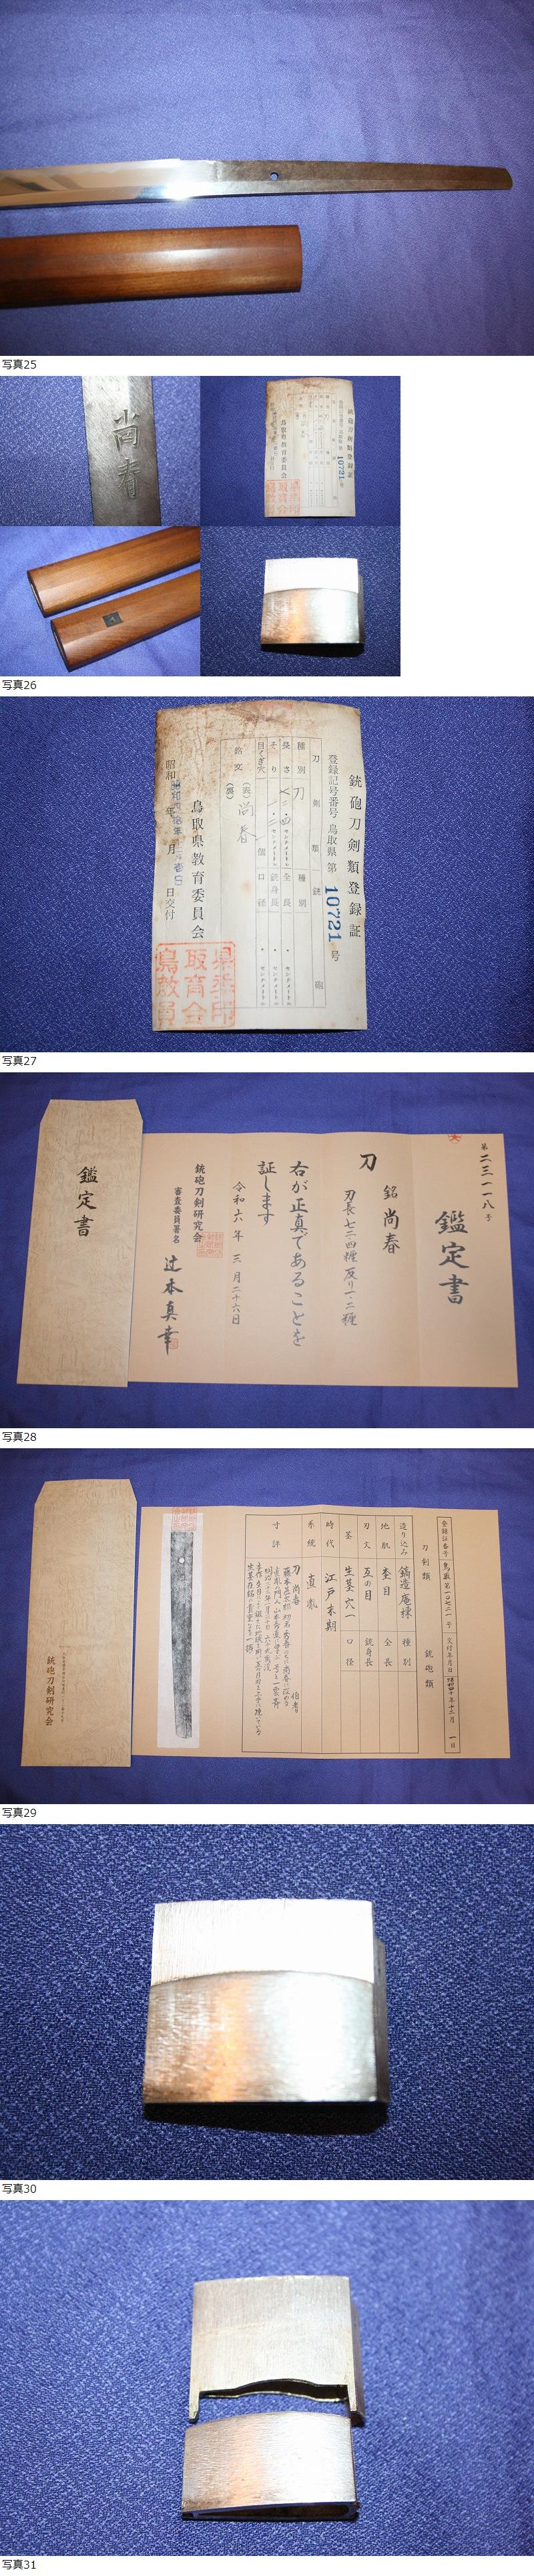 写真25
尚春
銃砲刀剣類登録証
10721
鳥取県教育委員会
写真26
銃砲刀剣類登録証
登録記号番号 鳥取県 第 10721 号
刀剣類 銃砲
種別 刀 種別
長さ 七二・四 センチメートル 全長 ・ センチメートル
そり 一・二 センチメートル 銃身長 ・ センチメートル
目くぎ穴 個 口径 ・ センチメートル
銘文 (表) 尚春
(裏)
鳥取県教育委員会
昭和 年 月 日交付
写真27
鑑定書
第二三一一八号
鑑定書
刀 銘 尚春
刃長七二・四糎 反り一・二糎
右が正真であることを
証します
令和六年 三月二十六日
銃砲刀剣研究会
審査委員署名 辻本真幸
写真28
銃砲刀剣研究会
刀剣類 銃砲類
造り込み 鎬造庵棟 種別
地肌 杢目 全長
刃文 互の目 銃身長
茎 生茎穴一 口径
時代 江戸末期
系統 直胤
寸評 刀 尚春
写真29
写真30
写真31